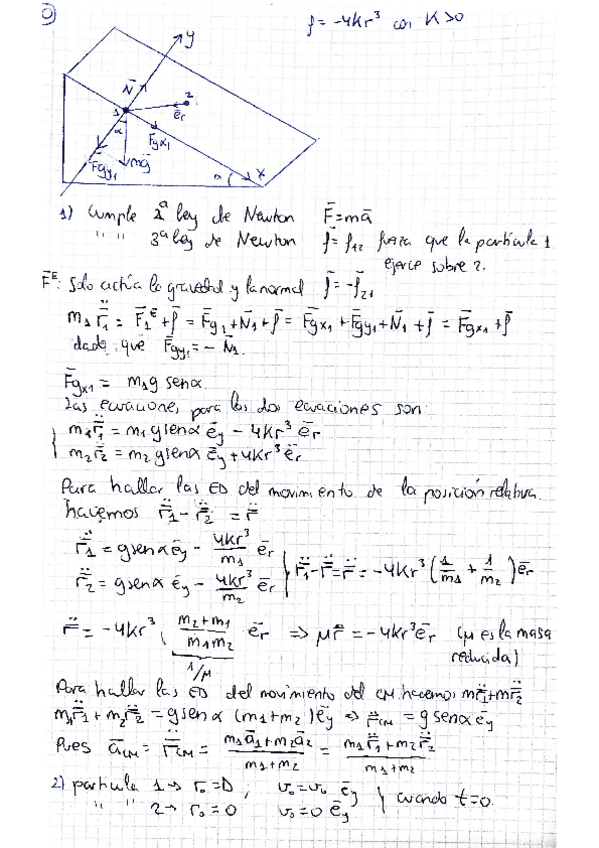 f = -4Kr³ con K>0
y
N̄
1
2
ēr
α
Fgx1
mḡ
F̄gy1
α
x
1) Cumple 2ª ley de Newton F̄=mā
" " 3ª ley de Newton f̄ = f̄12 fuerza que la partícula 1
ejerce sobre 2.
F̄ᴱ: Solo actúa la gravedad y la normal f̄ = -f̄21
m1 r̄̈1 = F̄1ᴱ + f̄ = F̄g1 + N̄1 + f̄ = F̄gx1 + F̄gy1 + N̄1 + f̄ = F̄gx1 + f̄
dado que F̄gy1 = - N̄1.
F̄gx1 = m1g senα.
Las ecuaciones para las dos ecuaciones son:
m1r̄̈1 = m1 g senα ēy - 4Kr³ ēr
m2r̄̈2 = m2 g senα ēy + 4Kr³ ēr
Para hallar las ED del movimiento de la posición relativa.
hacemos r̄̈1 - r̄̈2 = r̄̈
r̄̈1 = g senα ēy - 4Kr³/m1 ēr
r̄̈2 = g senα ēy - 4Kr³/m2 ēr } r̄̈1 - r̄̈2 = r̄̈ = -4Kr³ (1/m1 + 1/m2) ēr
r̄̈ = -4Kr³ · (m2+m1)/(m1m2) ēr => μr̄̈ = -4Kr³ēr (μ es la masa
1/μ reducida)
Para hallar las ED del movimiento del CM hacemos m r̄̈1 + m r̄̈2
m1r̄̈1 + m2r̄̈2 = g senα (m1+m2) ēy => r̄̈CM = g senα ēy
Pues āCM = r̄̈CM = (m1ā1 + m2ā2)/(m1+m2) = (m1r̄̈1 + m2r̄̈2)/(m1+m2)
2) partícula 1 → r0 = D ; v0 = v0 ēy
" " 2 → r0 = 0 v0 = 0 ēy } cuando t=0.